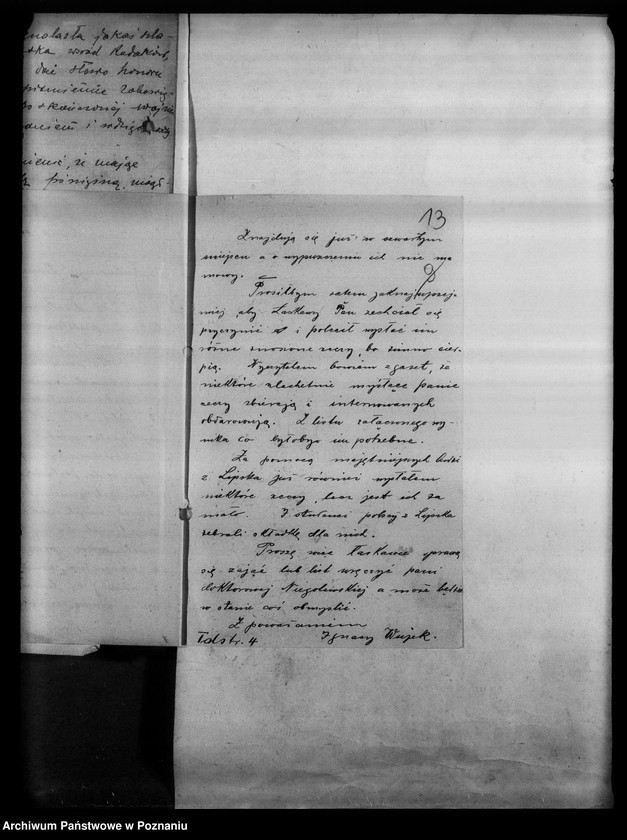 znalazła jakaś
wśród Rodaków
dać słowo honoru
piśmiennie
wojnie
i
mając
13
Znajdują się już w czwartym
miejscu a o wypuszczeniu ich nie ma
mowy.
Prosiłbym zatem jaknajuprzej-
miej, aby Łaskawy Pan zechciał się
przyczynić i polecił wysłać im
różne znoszone rzeczy, bo zimno cier-
pią. Wyczytałem bowiem z gazet, że
niektóre szlachetnie myślące panie
rzeczy zbierają i internowanych
obdarowują. Z listu załączonego wy-
nika co byłoby im potrzebne.
Za pomocą majętniejszych ludzi
z Lipska już również wysłałem
niektóre rzeczy, lecz jest ich za
mało. I studenci polscy z Lipska
zebrali składkę dla nich.
Proszę więc łaskawie sprawą
się zająć lub list wręczyć pani
doktorowej Niegolewskiej a może będzie
w stanie coś obmyślić.
Z poważaniem
Idstr. 4 Ignacy Wujek.
Archiwum Państwowe w Poznaniu